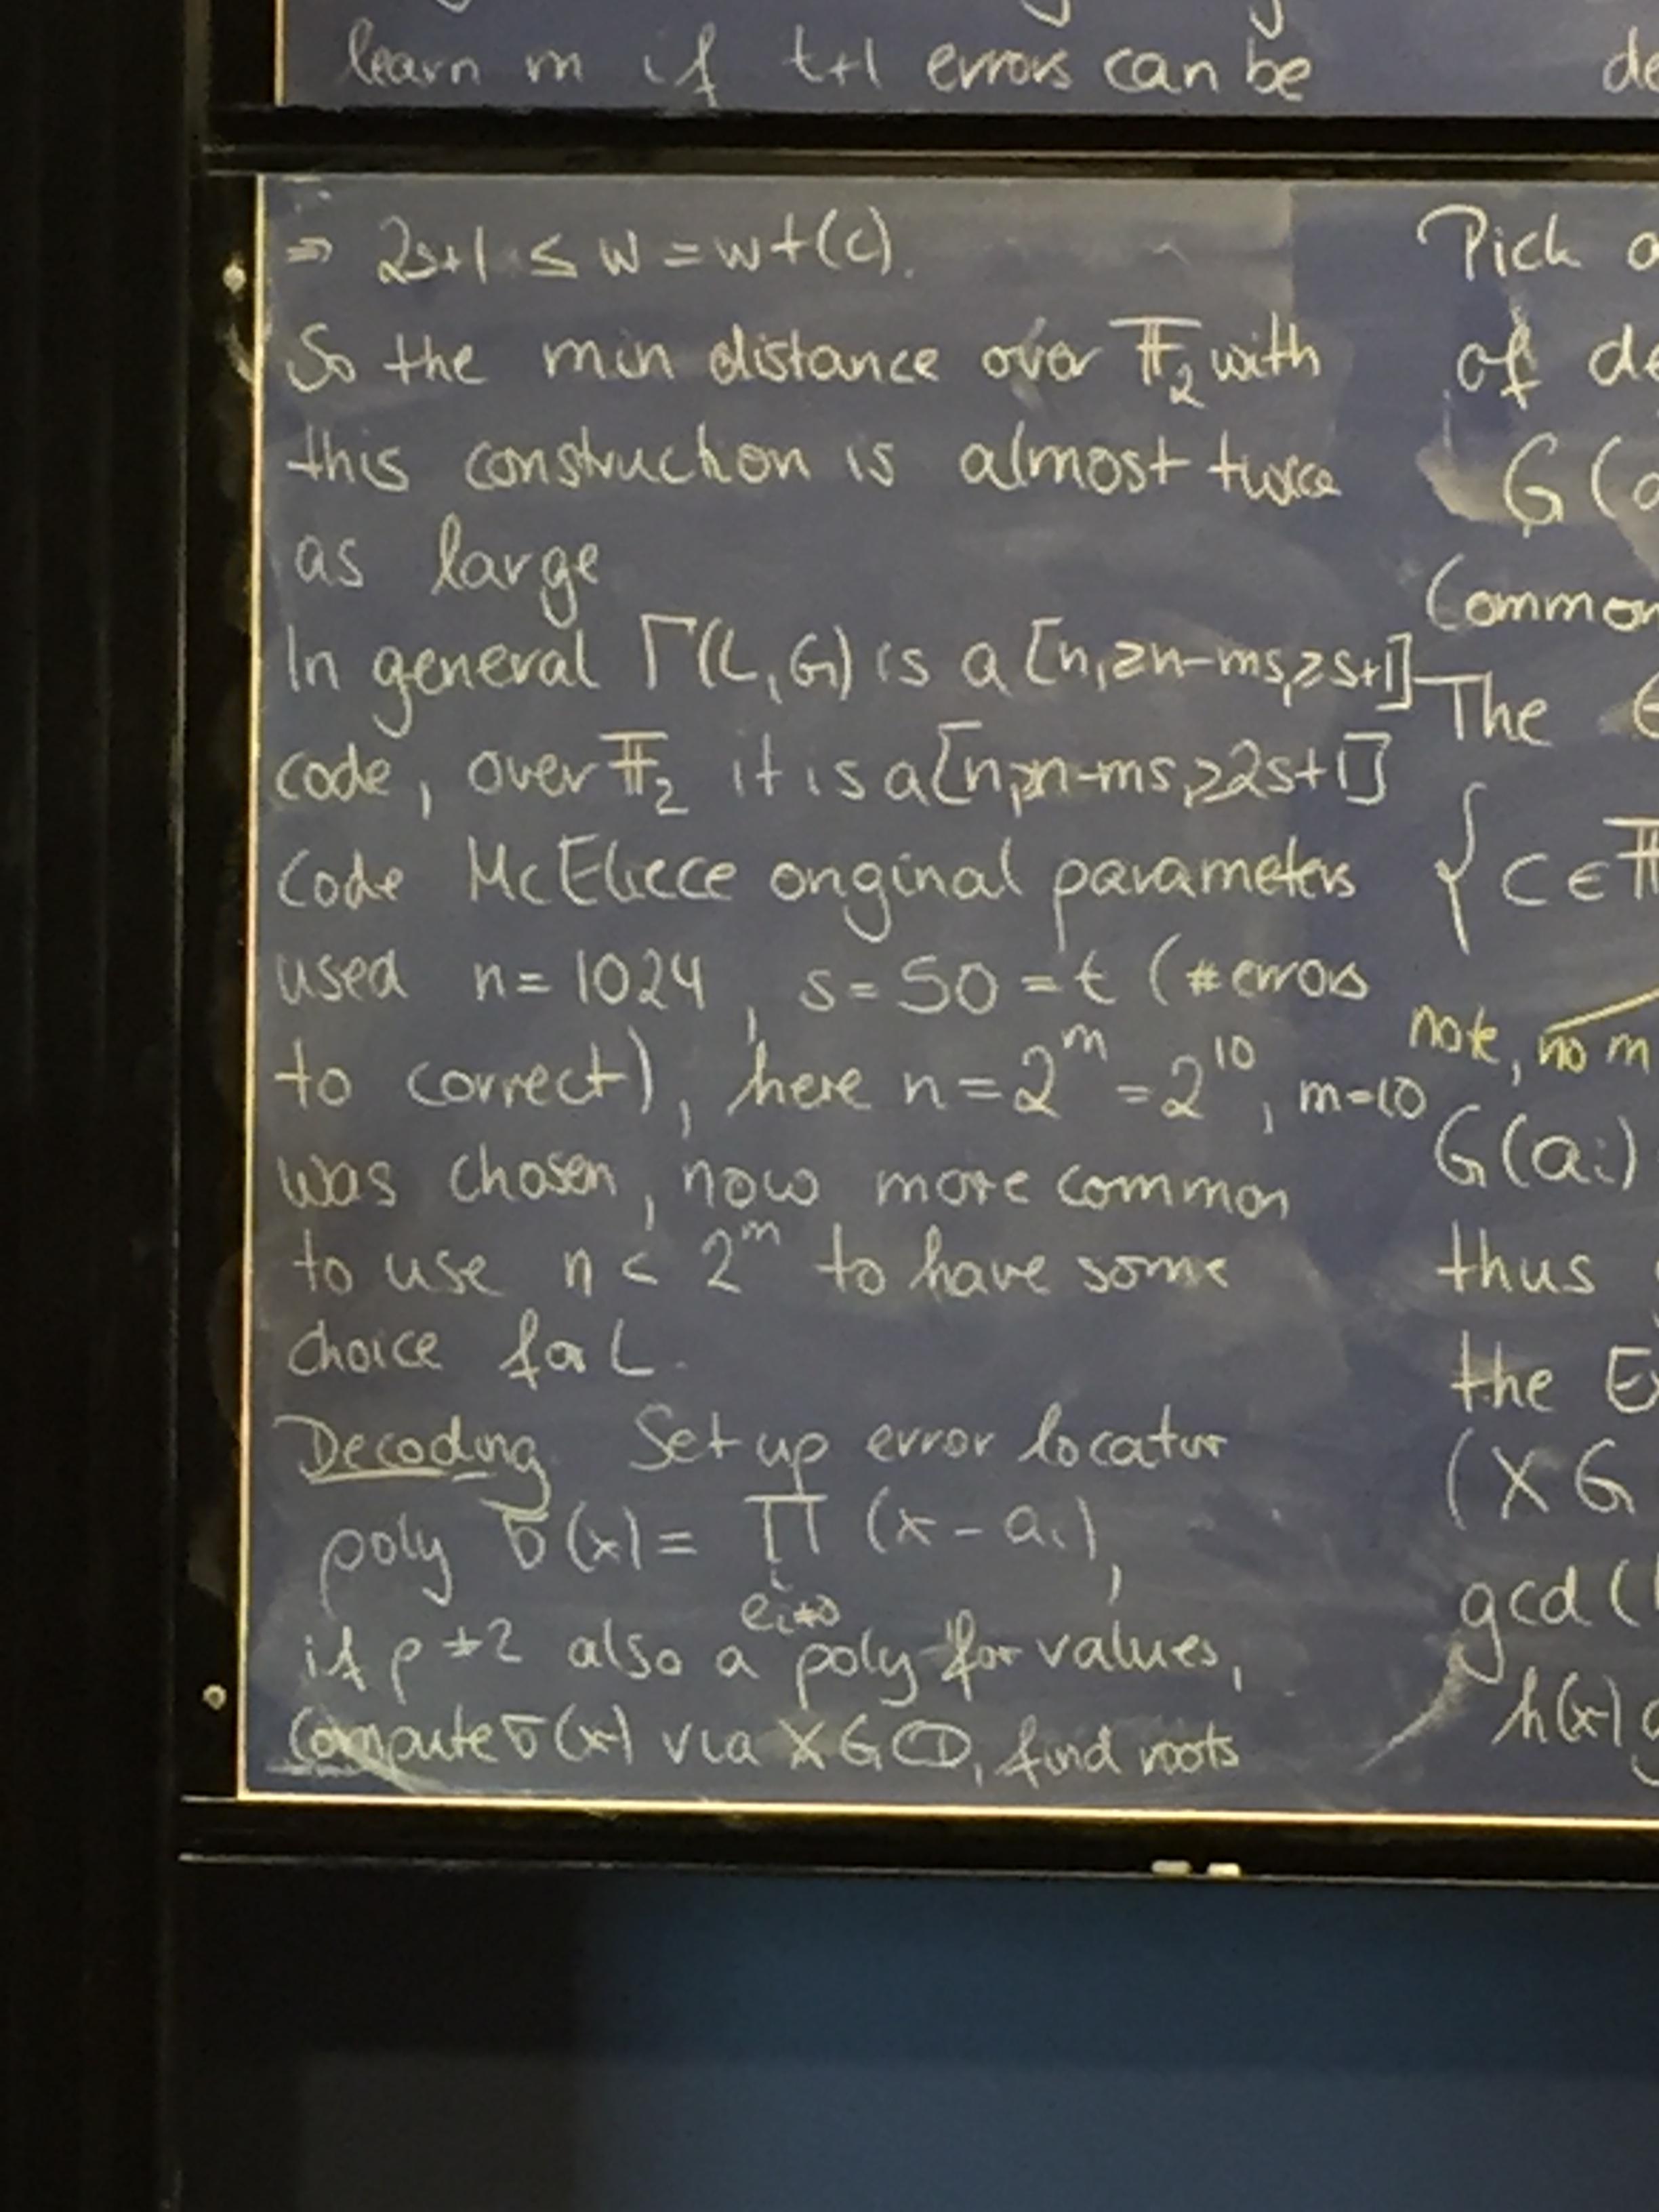 learn m if t+1 errors can be
⇒ 2s+1 ≤ w = wt(c).
So the min distance over 𝔽₂ with
this construction is almost twice
as large
In general Γ(L,G) is a [n,≥n-ms,≥s+1]
code, over 𝔽₂ it is a [n,≥n-ms,≥2s+1]
Code McEliece original parameters
used n=1024, s=50=t (#errors
to correct), here n=2^m=2^10, m=10
was chosen, now more common
to use n < 2^m to have some
choice for L.
Decoding Set up error locator
poly σ(x) = ∏ (x-aᵢ),
eᵢ≠0
if p≠2 also a poly for values,
Compute σ(x) via XGCD, find roots
de
Pick a
of de
G(a
Common
The
{ c ∈ 𝔽
note, no m
G(aᵢ)
thus
the Ex
(XG
gcd(
h(x) g